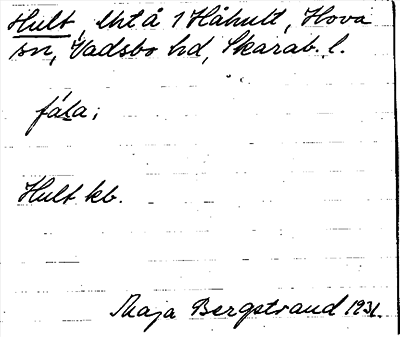 Hult, lht å 1 Håhult, Hova
sn, Vadsbo hd, Skarab. l.
fála;
Hult kb.
Maja Bergstrand 1931.